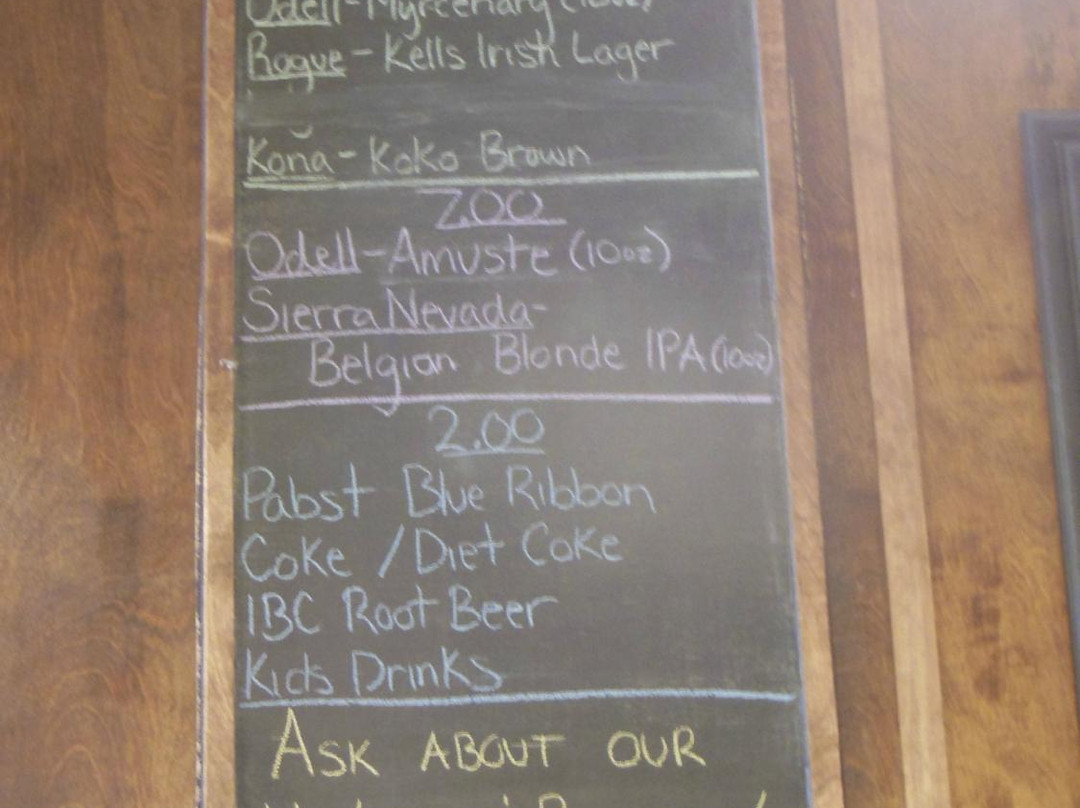 Odell-Myrcenary (10oz)
Rogue - Kells Irish Lager
Kona - Koko Brown
7.00
Odell-Amuste (10oz)
Sierra Nevada-
Belgian Blonde IPA (10oz)
2.00
Pabst Blue Ribbon
Coke / Diet Coke
IBC Root Beer
Kids Drinks
ASK ABOUT OUR